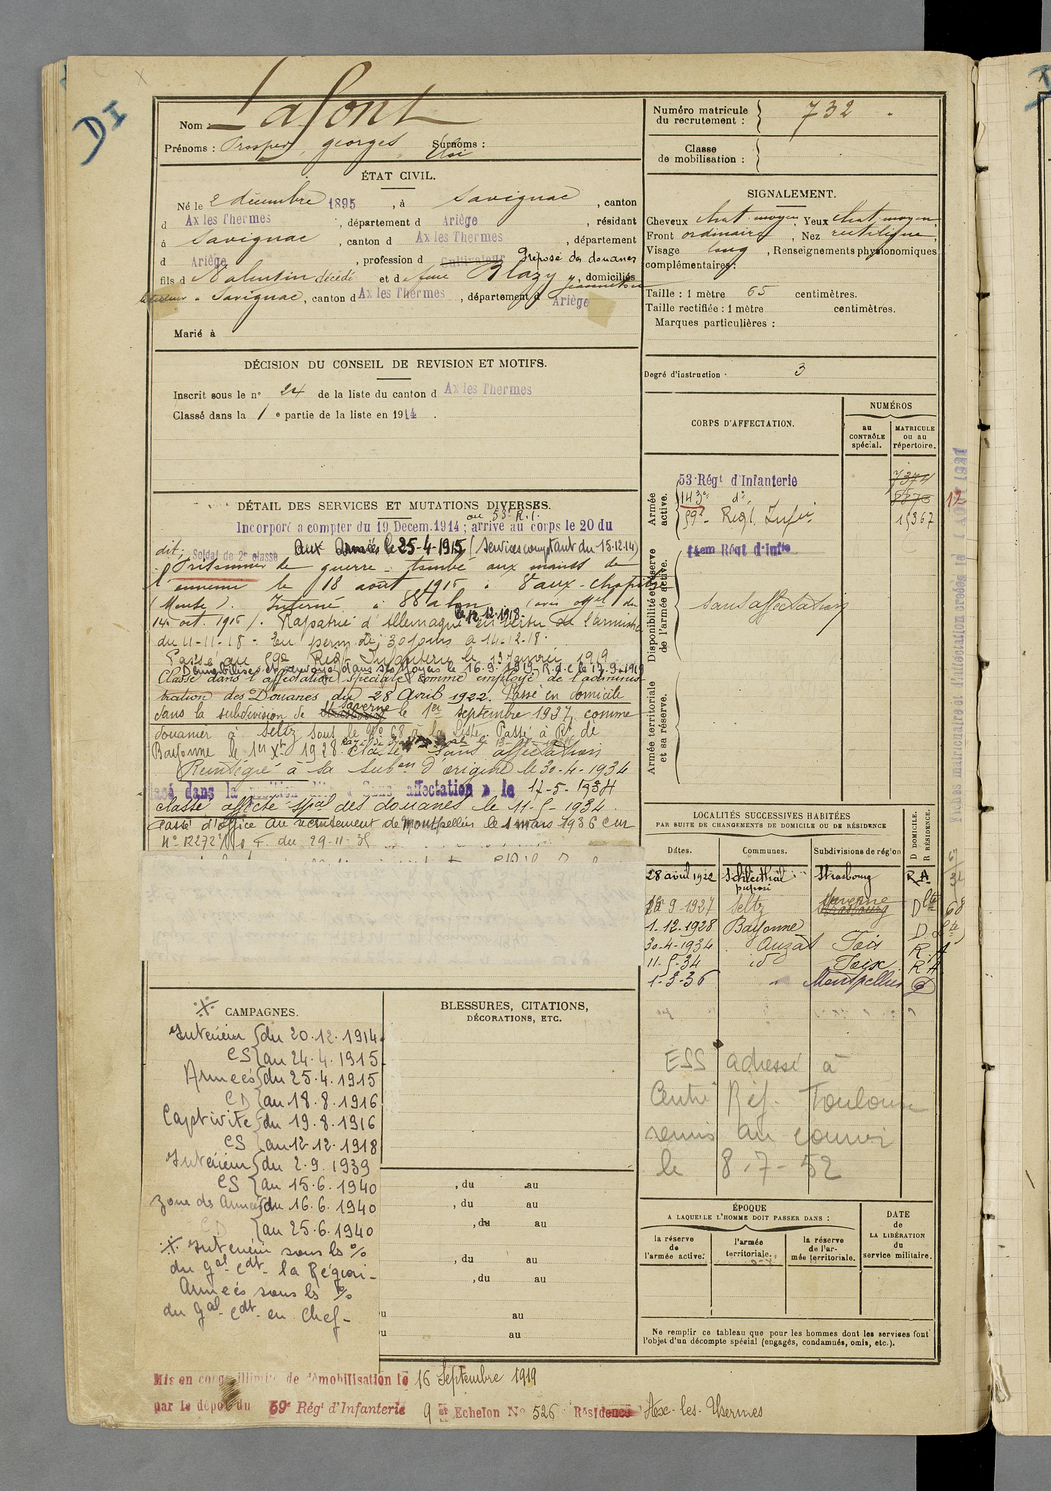 DI
Nom : Lafont
Prénoms : Prosper, georges Surnoms :
Eloi
Numéro matricule du recrutement : 732
Classe de mobilisation :
ÉTAT CIVIL.
Né le 2 décembre 1895, à Savignac, canton
d Ax les Thermes, département d Ariège, résidant
à Savignac, canton d Ax les Thermes, département
d Ariège, profession d Cultivateur Préposé des douanes
fils d Valentin décédé et d feue Blazy, domiciliés
à Savignac, canton d Ax les Thermes, département d Ariège
Marié à
SIGNALEMENT.
Cheveux chat. moyen Yeux chat. moyen
Front ordinaire, Nez rectiligne
Visage long, Renseignements physionomiques
complémentaires :
Taille : 1 mètre 65 centimètres.
Taille rectifiée : 1 mètre centimètres.
Marques particulières :
Degré d'instruction : 3
DÉCISION DU CONSEIL DE REVISION ET MOTIFS.
Inscrit sous le n° 24 de la liste du canton d Ax les Thermes
Classé dans la 1e partie de la liste en 1914.
CORPS D'AFFECTATION.
NUMÉROS
au CONTRÔLE spécial.
MATRICULE ou au répertoire.
Armée active.
53 Régt d'Infanterie 7374
143e do 5573 12
59e Regt Infie 15367
Disponibilité et réserve de l'armée active.
14em Régt d'Infie
sans affectation
Armée territoriale et sa réserve.
DÉTAIL DES SERVICES ET MUTATIONS DIVERSES.
au 53e R.I.
Incorporé a compter du 19 Decem. 1914 ; arrivé au corps le 20 du
dit, Soldat de 2e classe aux Armées le 25-4-1915 (services comptant du 15.12.14)
Prisonnier de guerre tombé aux mains de
l'ennemi le 18 août 1916 à Vaux-Chapitre
(Meuse). Interné à (avis offel du
14 oct. 1916). Rapatrié d'Allemagne le 12.12.1918 en vertu de l'armistice
du 11-11-18. En perm de 30 jours a 14-12-18.
Passé au 59e Regt Infanterie le 13 Janvier 1919
Classé dans l'affectation spéciale comme employé de l'adminis-
tration des Douanes du 28 Avril 1922. Passé en domicile
dans la subdivision de Strasbourg Saverne le 1er septembre 1927, comme
douanier à Seltz sous le No 68 de la liste. Passé à Rt de
Bayonne le 1er Xbre 1928. Classé sans affectation
Réintégré à la Subon d'origine le 30-4-1934
Classé dans la position dite « Sans affectation » le 17-5-1934
Classé affecté spal des douanes le 11-5-1934
Passé d'office au recrutement de Montpellier le 1 mars 1936 cir
No 12272 du 29-11-35
LOCALITÉS SUCCESSIVES HABITÉES
PAR SUITE DE CHANGEMENTS DE DOMICILE OU DE RÉSIDENCE
Dates. Communes. Subdivisions de région D DOMICILE. R RÉSIDENCE.
28 avril 1922 Schleithal Strasbourg R A
préposé
9-1927 Seltz Saverne Strasbourg D 68
1-12-1928 Bayonne D
30-4-1934 Auzat Foix R. A
11-5-34 ido Foix R. A
1-3-36 " Montpellier D
ESS adressé à
Centre Rég. Toulouse
le 8-7-52
CAMPAGNES.
Intérieur du 20.12.1914
CS au 24.4.1915
Armées du 25.4.1915
CD au 18.8.1916
Captivité du 19.8.1916
CS au 12.12.1918
Intérieur du 2.9.1939
CS au 15.6.1940
Zone des Armées du 16.6.1940
CD au 25.6.1940
Intérieur sous ls o/o
du Gal Cdt la Région
Armées sous ls o/o
du Gal Cdt en Chef
BLESSURES, CITATIONS,
DÉCORATIONS, ETC.
, du au
, du au
, du au
, du au
, du au
u au
u au
ÉPOQUE
A LAQUELLE L'HOMME DOIT PASSER DANS :
la réserve de l'armée active. l'armée territoriale. la réserve de l'armée territoriale.
DATE de LA LIBÉRATION du service militaire.
Ne remplir ce tableau que pour les hommes dont les services font
l'objet d'un décompte spécial (engagés, condamnés, omis, etc.).
Mis en congé illimité de démobilisation le 16 Septembre 1919
par le dépôt du 59e Régt d'Infanterie 9 e Echelon No 526 Résidence Ax-les-Thermes